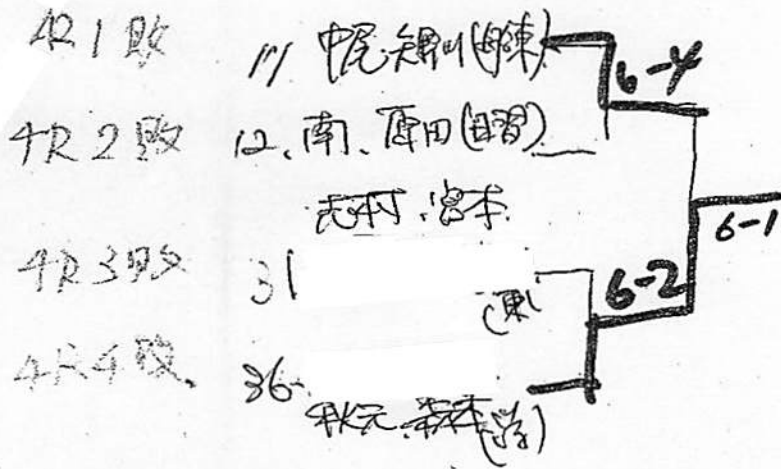 4R1敗 11 中尾・矢野川(東) 6-4
4R2敗 12、南、原田(習)
志村、宮本
6-1
4R3敗 31 6-2
(東)
4R4敗、 36-
秋元、森本(学)